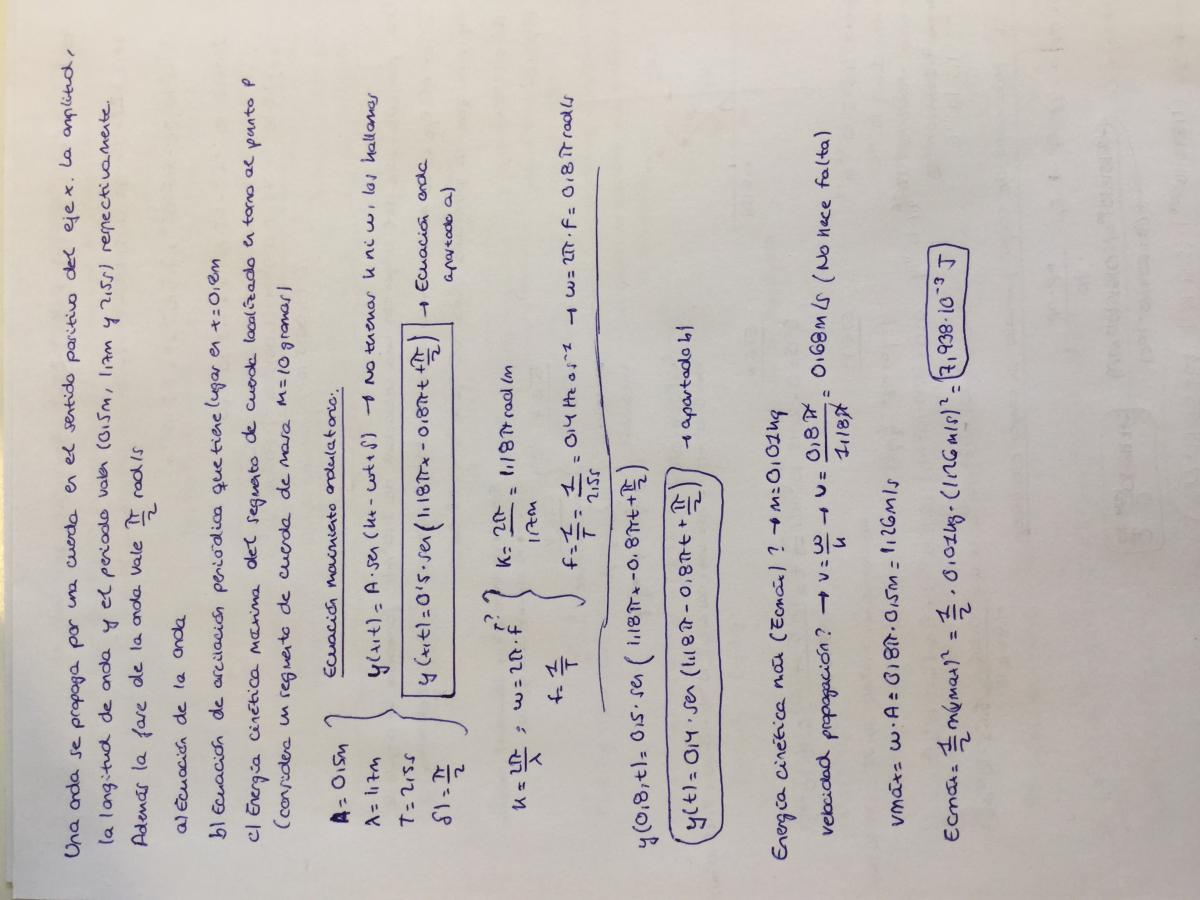 Una onda se propaga por una cuerda en el sentido positivo del eje x. La amplitud,
la longitud de onda y el periodo valen (0,5m, 1,7m y 2,5s) respectivamente.
Además la fase de la onda vale π/2 rad/s
a) Ecuación de la onda
b) Ecuación de oscilación periódica que tiene lugar en x=0,8m
c) Energía cinética máxima del segmento de cuerda localizado en torno al punto P
(considera un segmento de cuerda de masa M=10 gramos)
A=0,5m
λ=1,7m
T=2,5s
δ)=π/2
Ecuación movimiento ondulatorio:
y(x,t)=A·sen(kx-wt+δ) → No tenemos k ni w, las hallamos
y(x,t)=0'5·sen(1,18πx-0,8πt+π/2) → Ecuación onda
apartado a)
k=2π/λ ; w=2π·f ?
f=1/T
k=2π/1,7m=1,18π rad/m
f=1/T=1/2,5s=0,4Hz os⁻¹ → w=2π·f=0,8π rad/s
y(0,8,t)=0,5·sen(1,18πx-0,8πt+π/2)
y(t)=0,4·sen(1,18π-0,8πt+π/2) → apartado b)
Energía cinética máx (Ecmáx)? → M=0,01kg
velocidad propagación? → v=w/k → v=0,8π/1,18π=0,68m/s (No hace falta)
Vmáx=w·A=0,8π·0,5m=1,26m/s
Ecmáx=1/2 m(vmax)²=1/2·0,01kg·(1,26m/s)²=7,938·10⁻³ J